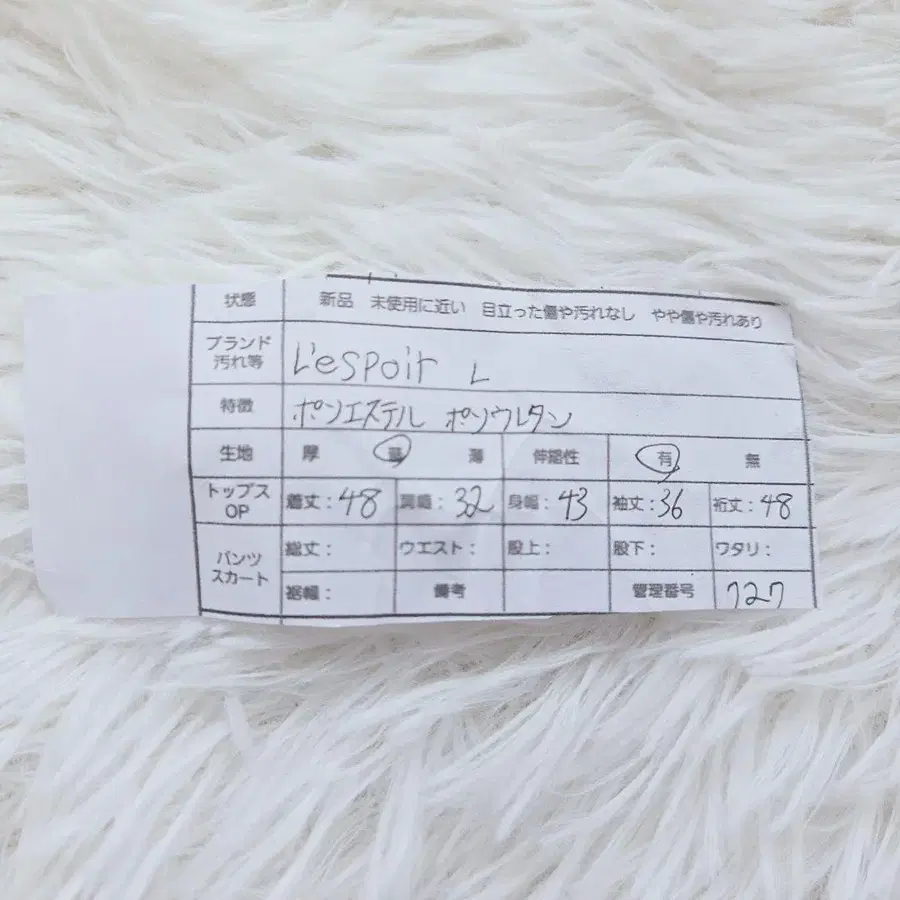 状態 新品 未使用に近い 目立った傷や汚れなし やや傷や汚れあり
ブランド
汚れ等 L'espoir L
特徴 ポリエステル ポリウレタン
生地 厚 普 薄 伸縮性 有 無
トップス
OP 着丈:48 肩幅:32 身幅:43 袖丈:36 裄丈:48
パンツ
スカート 総丈: ウエスト: 股上: 股下: ワタリ:
裾幅: 備考 管理番号 727